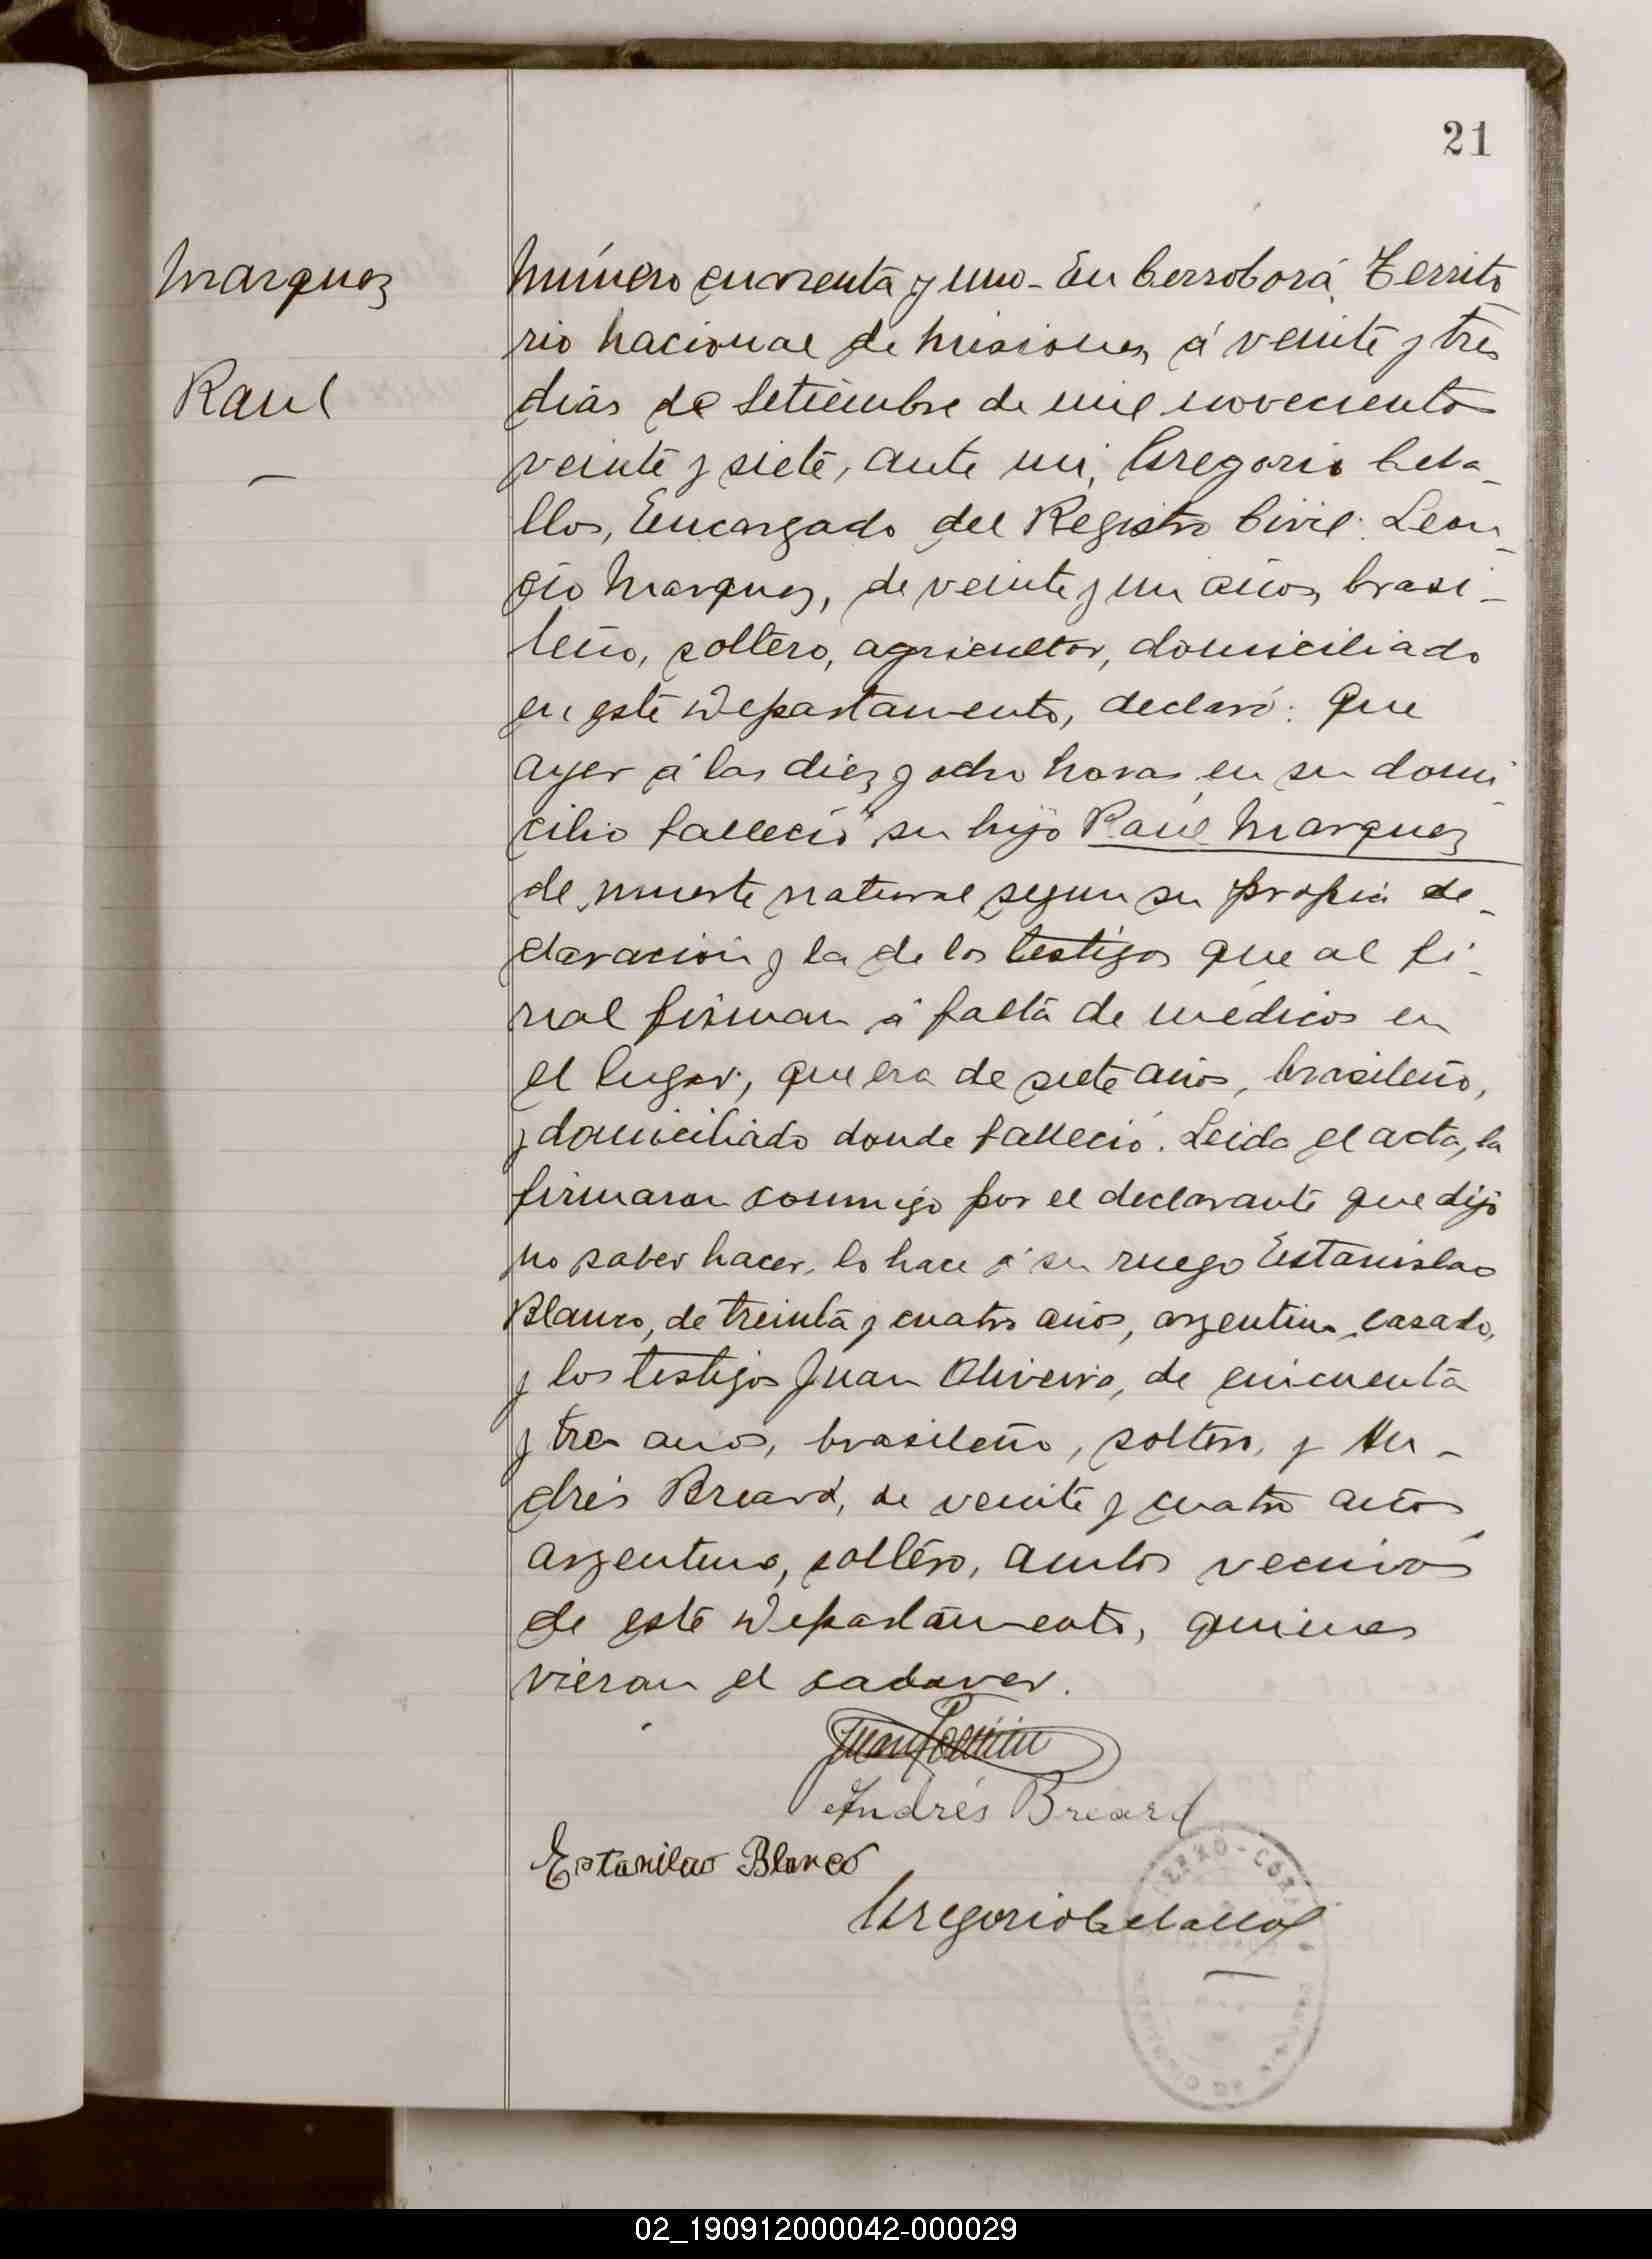 21
Marquez
Raul
Número cuarenta y uno - En Cerro Corá, Territo
rio Nacional de Misiones, á veinte y tres
dias de Setiembre de mil novecientos
veinte y siete, ante mi, Gregorio Ceba-
llos, Encargado del Registro Civil: Leon-
cio Marquez, de veinte y un años, brasi-
leño, soltero, agricultor, domiciliado
en este Departamento, declaró: Que
ayer á las diez y ocho horas, en su domi-
cilio falleció su hijo Raúl Marquez
de muerte natural segun su propia de-
claracion y la de los testigos que al fi-
nal firman á falta de médicos en
el lugar, que era de siete años, brasileño,
y domiciliado donde falleció. Leida el acta, la
firmaron conmigo por el declarante que dijo
no saber hacer, lo hace á su ruego Estanislao
Blanco, de treinta y cuatro años, argentino, casado,
y los testigos Juan Oliveira, de cincuenta
y tres años, brasileño, soltero, y An-
drés Breard, de veinte y cuatro años,
argentino, soltero, ambos vecinos
de este Departamento, quienes
vieron el cadaver.
Juan
Andrés Breard
Estanilao Blanco
Gregorio Ceballos
CERRO-CORÁ
02_190912000042-000029